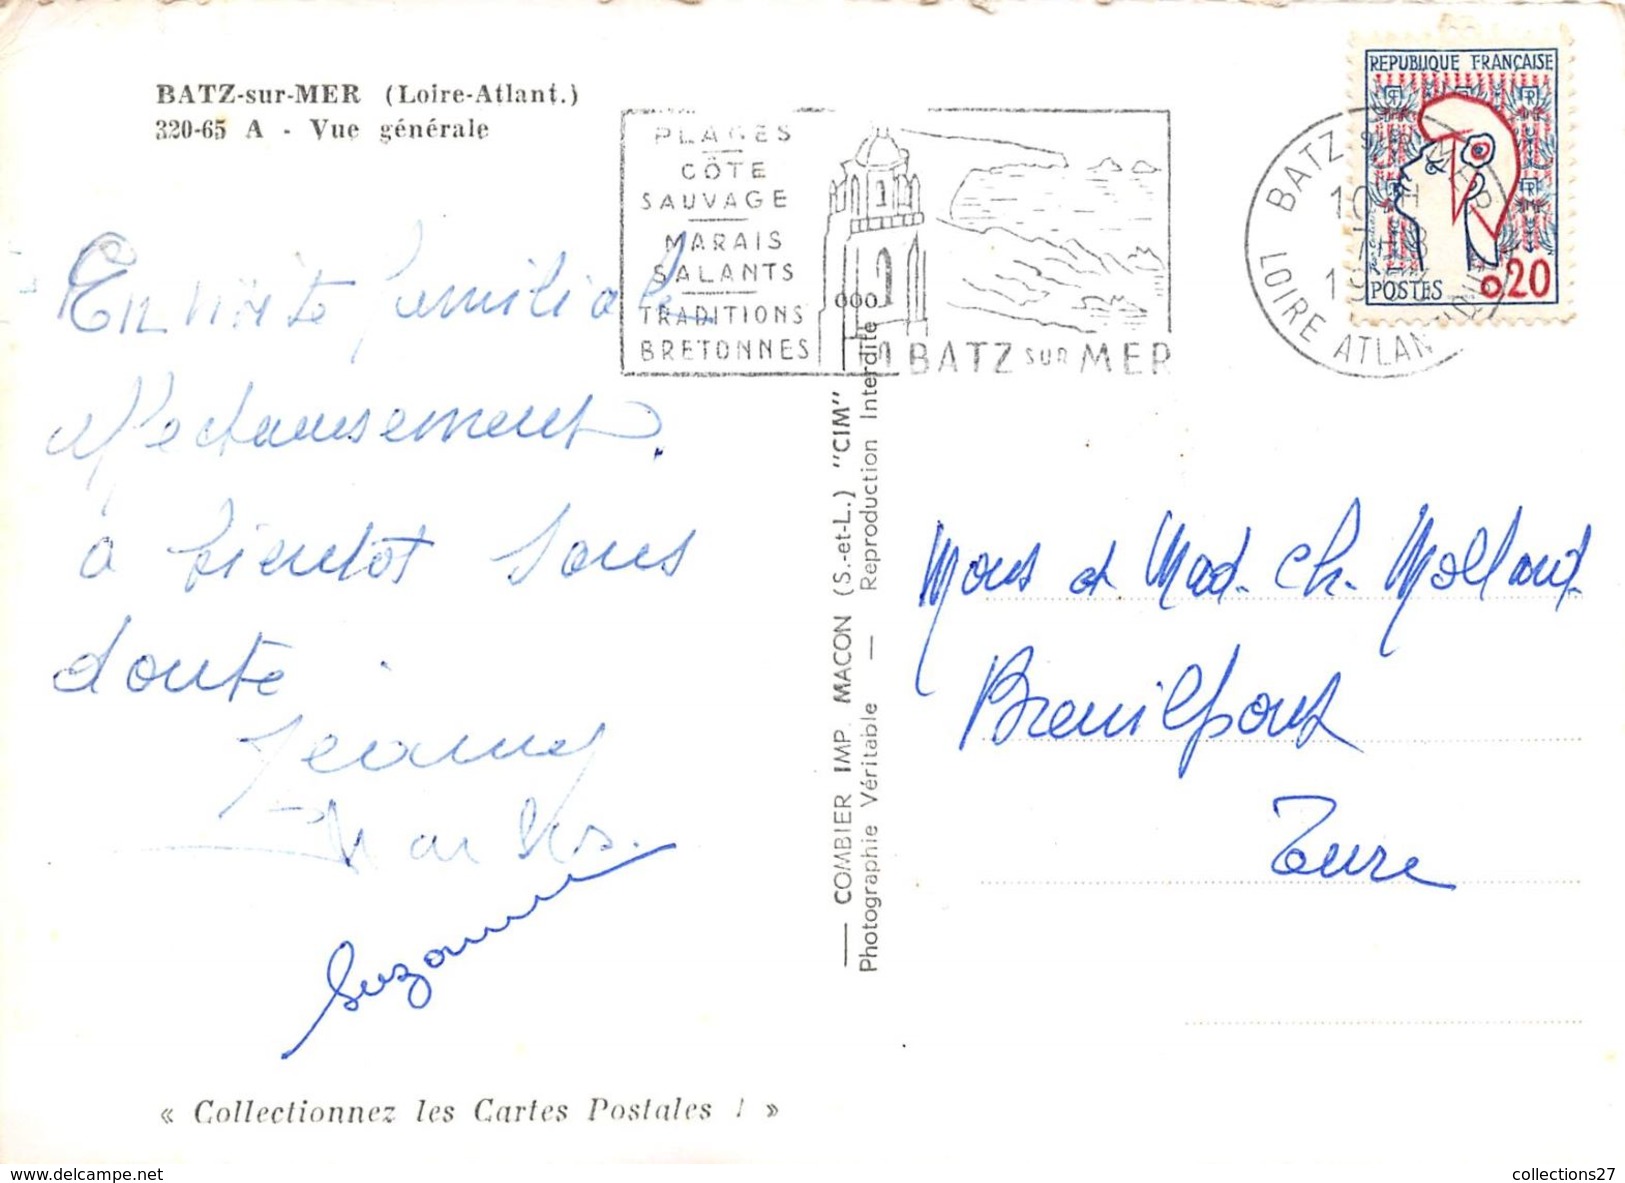 BATZ-sur-MER (Loire-Atlant.)
320-65 A - Vue générale
En visite familiale
Affectueusement
à bientôt sans
doute
Suzanne
« Collectionnez les Cartes Postales ! »
PLAGES
CÔTE
SAUVAGE
MARAIS
SALANTS
TRADITIONS
BRETONNES
BATZ SUR MER
— COMBIER IMP. MACON (S.-et-L.) "CIM"
Photographie Véritable — Reproduction Interdite
000
REPUBLIQUE FRANÇAISE
POSTES 0,20
BATZ SUR MER
10 H
LOIRE ATLANTIQUE
Mons et Mad. Ch. Mollard
Breuilpont
Eure
collections27